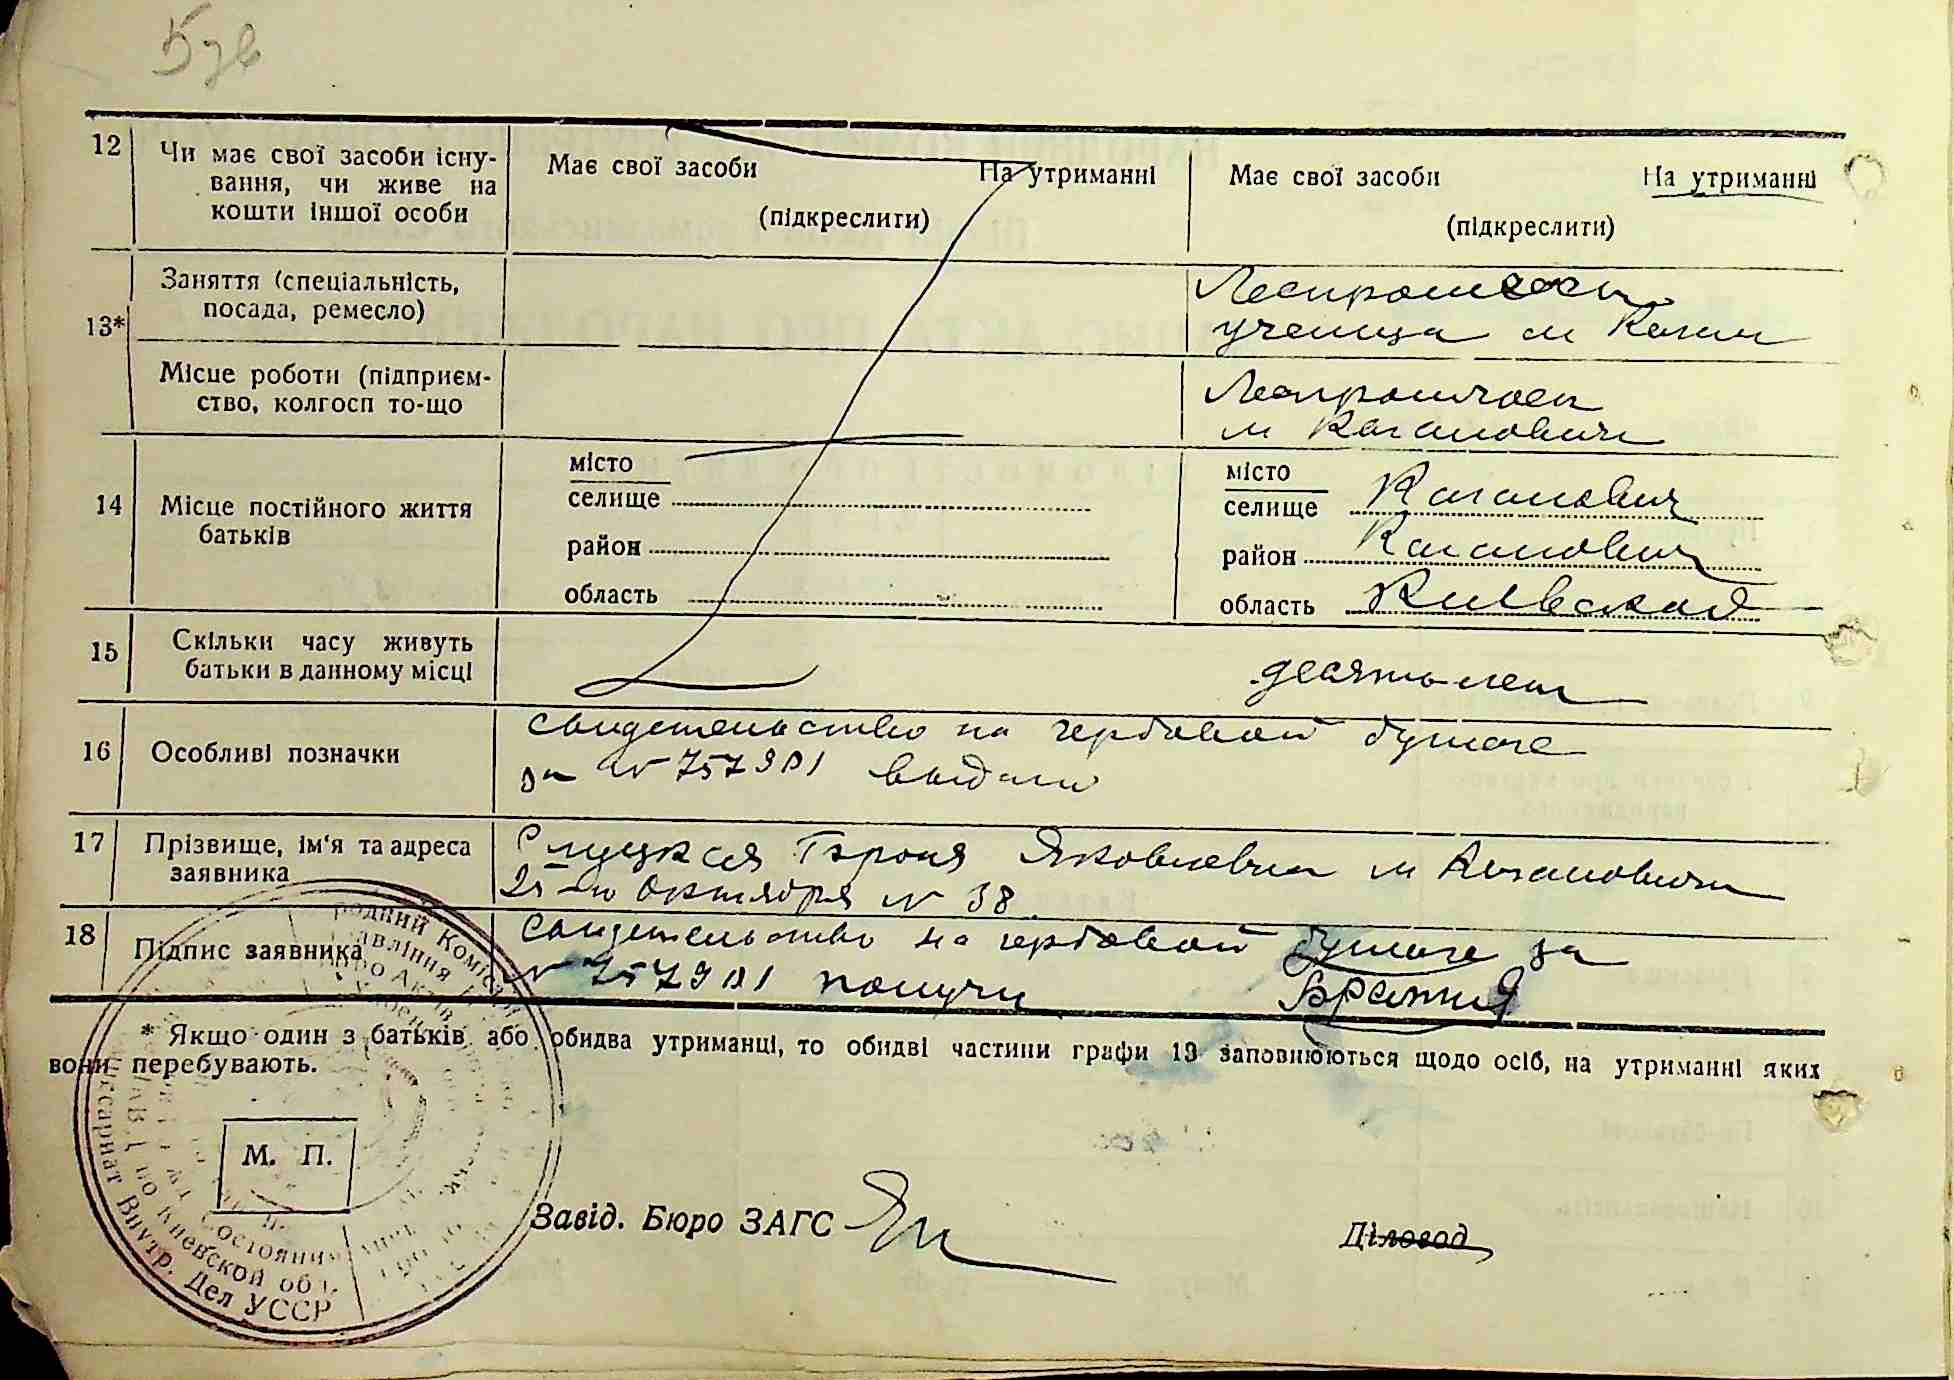 12
Чи має свої засоби існу-
вання, чи живе на
кошти іншої особи
Має свої засоби На утриманні
(підкреслити)
Має свої засоби На утриманні
(підкреслити)
13*
Заняття (спеціальність,
посада, ремесло)
ученица м
Місце роботи (підприєм-
ство, колгосп то-що
м Каганович
14
Місце постійного життя
батьків
місто
селище
район
область
місто
селище Каганович
район Каганович
область Киевская
15
Скільки часу живуть
батьки в данному місці
десять лет
16
Особливі позначки
свидетельство на гербовой бумаге
за № 757901 выдано
17
Прізвище, ім'я та адреса
заявника
Слуцкая Яковлевна м Кагановичи
25-го Октября № 38
18
Підпис заявника
Свидетельство на гербовой бумаге за
№ 757901 получи
* Якщо один з батьків або обидва утриманці, то обидві частини графи 13 заповнюються щодо осіб, на утриманні яких
вони перебувають.
М. П.
Завід. Бюро ЗАГС
Діловод
Внутр. Дел УССР
по Киевской обл.